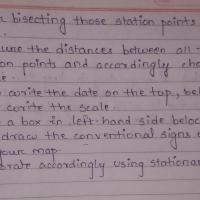 bisecting those station points
the distances between all
on points and accordingly ch
write the date on the top, bel
write the scale.
a box in left-hand side below
draw the conventional signs
your map.
accordingly using stationar